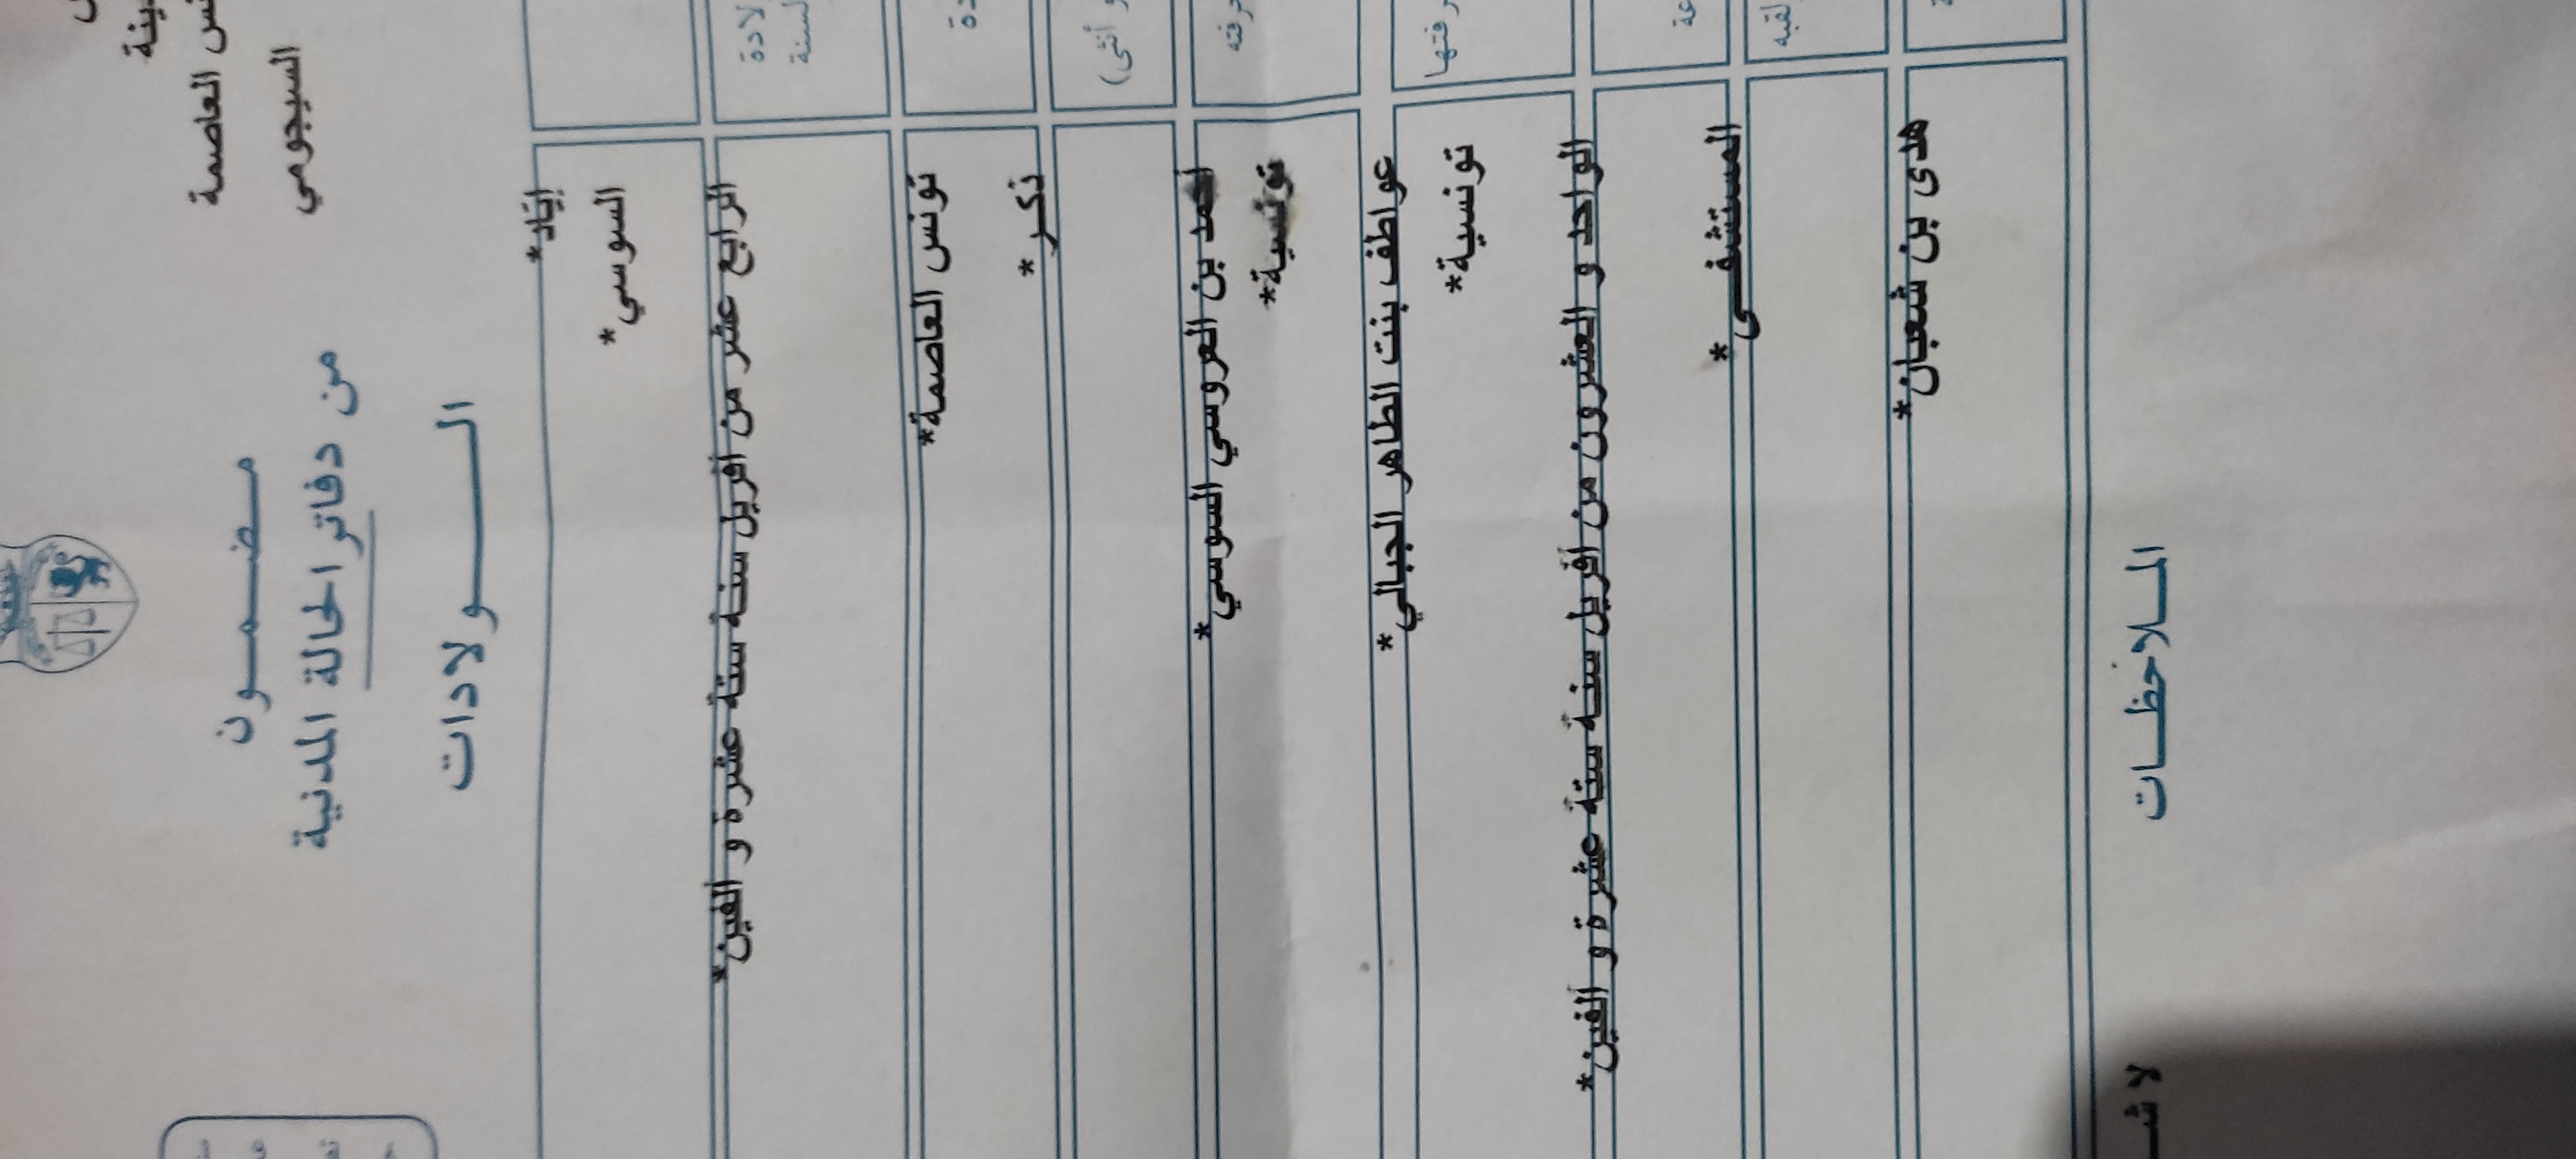 العاصمة
السيجومي
مضمون
من دفاتر الحالة المدنية
الولادات
إياد*
السوسي*
الرابع عشر من أفريل سنة ستة عشرة و الفين*
تونس العاصمة*
ذكر*
و أنثى)
أحمد بن العروسي السوسي*
تونسية*
حرفته
عواطف بنت الطاهر الجبالي*
تونسية*
حرفتها
الواحد و العشرون من أفريل سنة ستة عشرة و الفين*
المستشفى*
لقبه
هدى بن شعبان*
الملاحظات